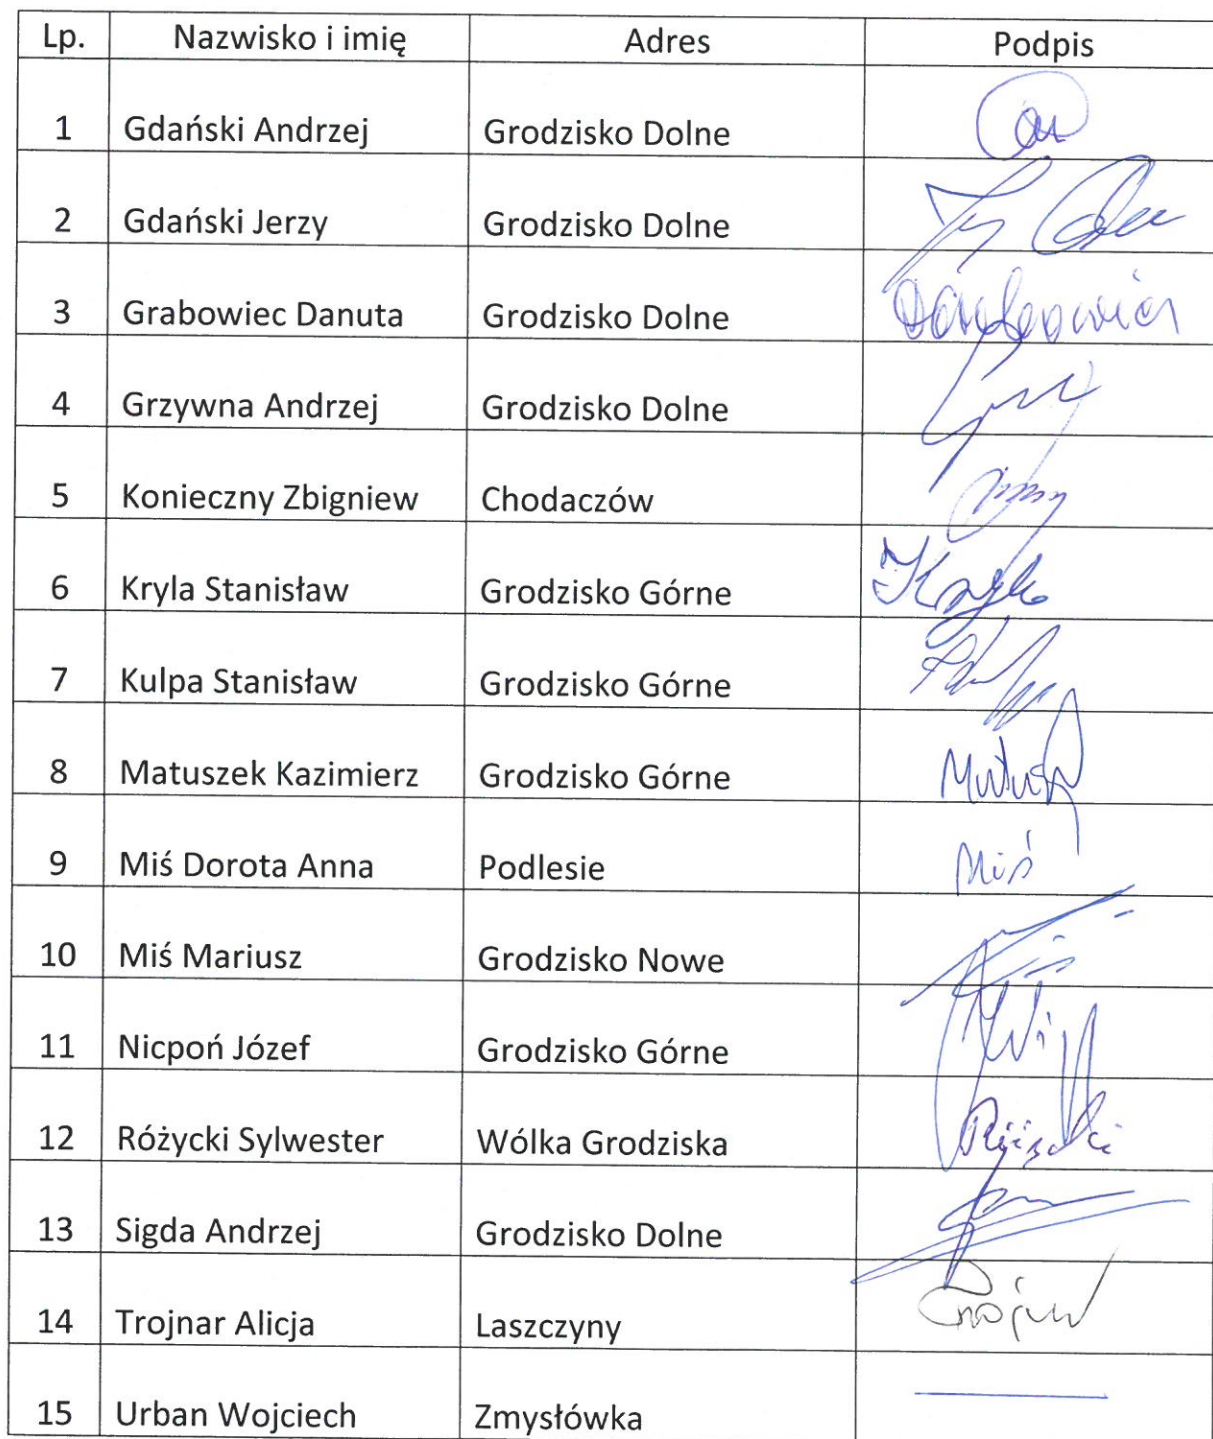 Lp. Nazwisko i imię Adres Podpis
1 Gdański Andrzej Grodzisko Dolne
2 Gdański Jerzy Grodzisko Dolne
3 Grabowiec Danuta Grodzisko Dolne
4 Grzywna Andrzej Grodzisko Dolne
5 Konieczny Zbigniew Chodaczów
6 Kryla Stanisław Grodzisko Górne
7 Kulpa Stanisław Grodzisko Górne
8 Matuszek Kazimierz Grodzisko Górne
9 Miś Dorota Anna Podlesie Miś
10 Miś Mariusz Grodzisko Nowe
11 Nicpoń Józef Grodzisko Górne
12 Różycki Sylwester Wólka Grodziska
13 Sigda Andrzej Grodzisko Dolne
14 Trojnar Alicja Laszczyny
15 Urban Wojciech Zmysłówka